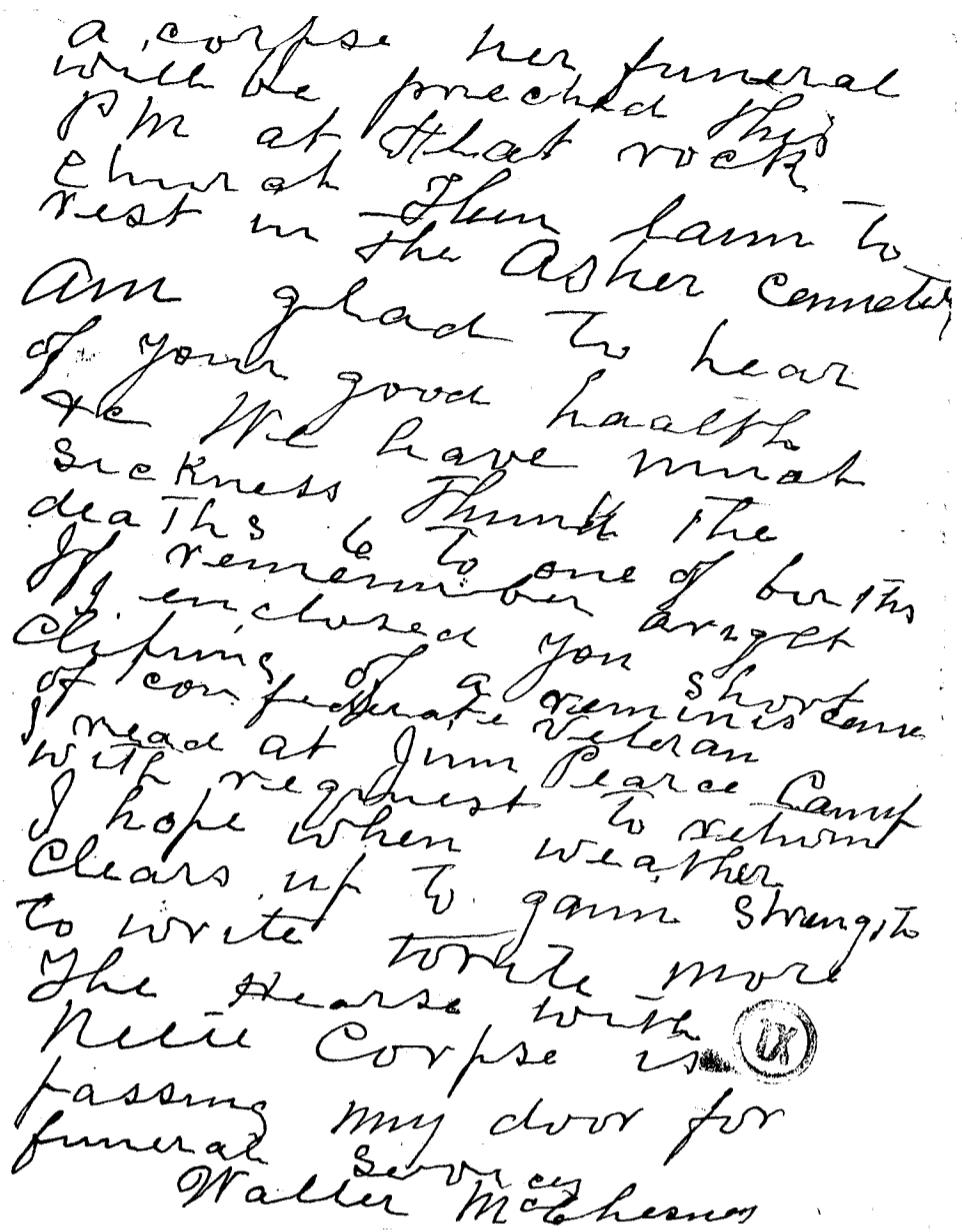 a corpse her funeral
will be preched this
PM at that rock
church Then lain to
rest in the Asher Cemetery
Am glad to hear
of your good haalth
&c We have much
sickness Think the
deaths 6 to one of births
If remember aright
I enclosed you short
Cliping of a reminiscence
of confederate Veteran
I read at Jim Pearce Camp
with request to return
I hope when weather
Clears up to gain strength
to write towrite more
The Hearse with
Corpse is
passing my door for
funeral Services
Walter McChesney
IX